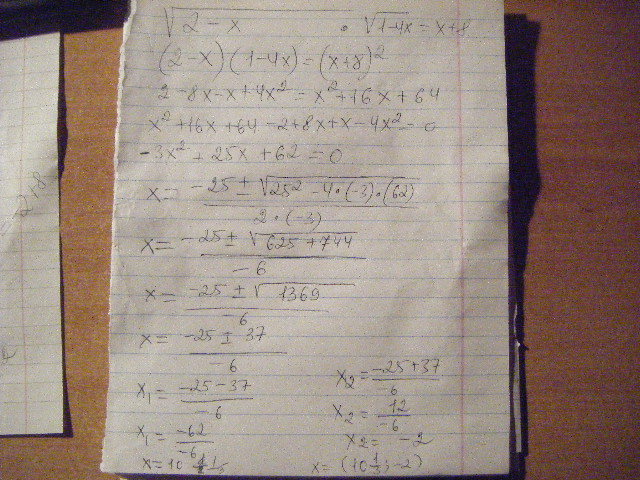 √2-x · √1-4x = x+8
(2-x)(1-4x)=(x+8)²
2-8x-x+4x²=x²+16x+64
x²+16x+64-2+8x+x-4x²=0
-3x²+25x+62=0
x= -25±√25²-4·(-3)·(62) / 2·(-3)
x= -25±√625+744 / -6
x= -25±√1369 / -6
x= -25±37 / -6
x₁= -25-37 / -6 x₂= -25+37 / -6
x₁= -62 / -6 x₂= 12 / -6
x₂= -2
x=10 x= (10 1/3; -2)